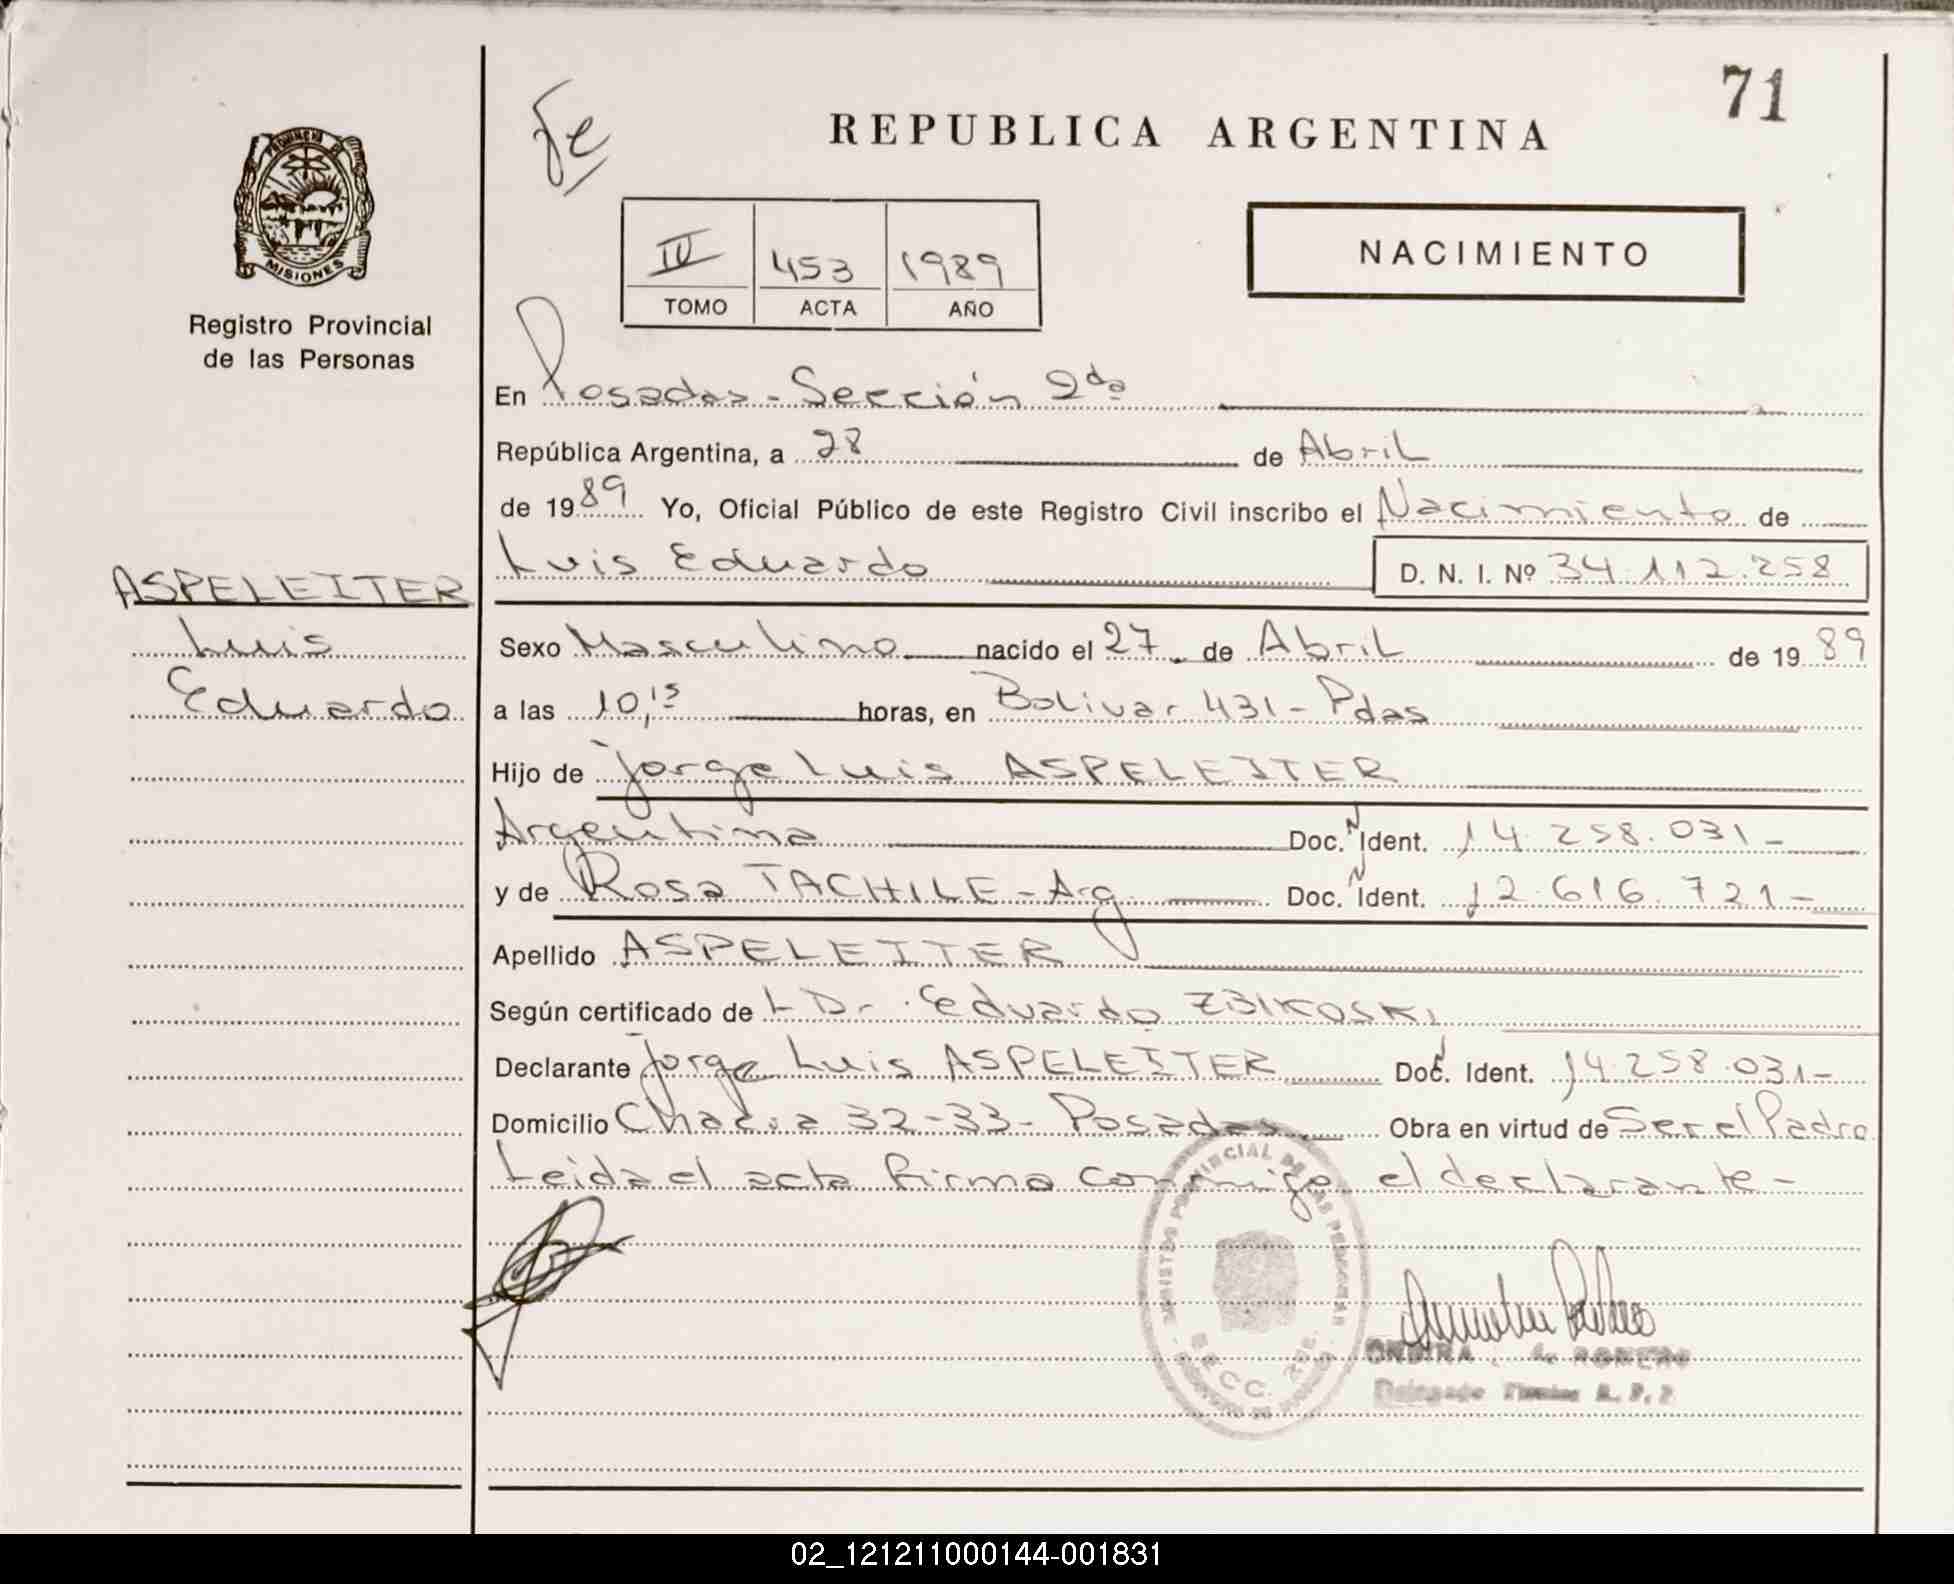 71
Fe
REPUBLICA ARGENTINA
PROVINCIA DE
MISIONES
Registro Provincial
de las Personas
IV 453 1989
TOMO ACTA AÑO
NACIMIENTO
En Posadas - Sección 2da
República Argentina, a 28 de Abril
de 1989 Yo, Oficial Público de este Registro Civil inscribo el Nacimiento de
Luis Eduardo D. N. I. Nº 34.112.258
ASPELEITER
Luis
Eduardo
Sexo Masculino nacido el 27 de Abril de 1989
a las 10,15 horas, en Bolivar 431 - Pdas
Hijo de Jorge Luis ASPELEITER
Argentina Doc. N Ident. 14.258.031-
y de Rosa TACHILE - Arg Doc. N Ident. 12.616.721-
Apellido ASPELEITER
Según certificado de L Dr. Eduardo ZBIKOSKI
Declarante Jorge Luis ASPELEITER Doc. N Ident. 14.258.031-
Domicilio Chacra 32-33- Posadas Obra en virtud de Ser el Padre
Leida el acta firma conmigo el declarante-
PROVINCIAL DE LAS PERSONAS
SECC. 2da.
ROMERO
02_121211000144-001831